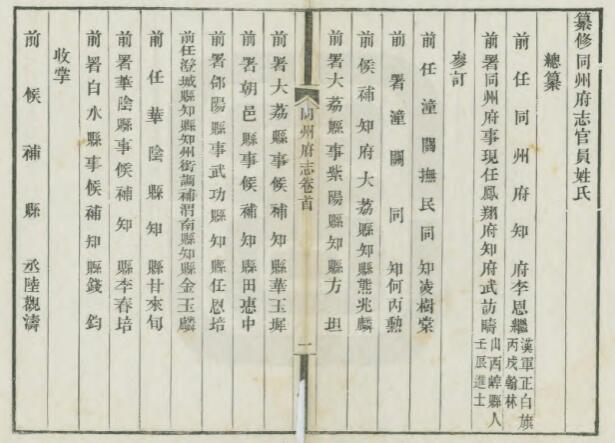 纂修同州府志官員姓氏
總纂
前任同州府知府李恩繼漢軍正白旗丙戌翰林
前署同州府事現任鳳翔府知府武訪疇山西崞縣人壬辰進士
參訂
前任潼關撫民同知凌樹棠
前署潼關同知何丙勲
前候補知府大荔縣知縣熊兆麟
前署大荔縣事紫陽縣知縣方坦
同州府志卷首
一
前署大荔縣事候補知縣華玉墀
前署朝邑縣事候補知縣田惠中
前署郃陽縣事武功縣知縣任恩培
前任澄城縣知縣知州銜調補渭南縣知縣金玉麟
前任華陰縣知縣甘來旬
前署華陰縣事候補知縣李春培
前署白水縣事候補知縣錢鈞
收掌
前候補縣丞陸觀濤